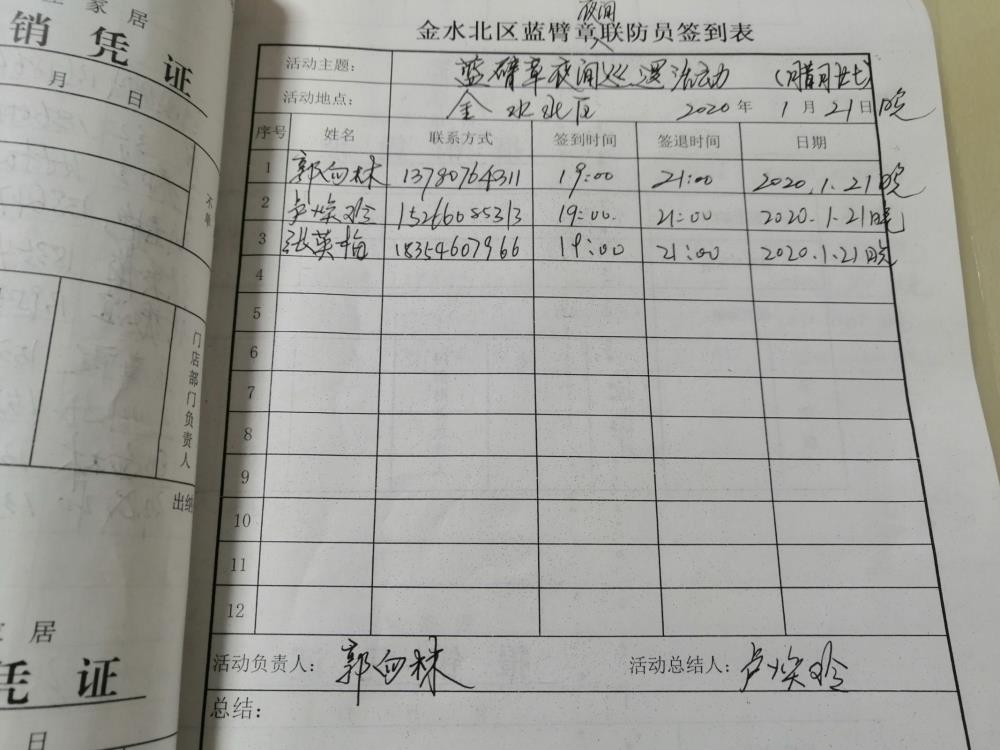 夜间
金水北区蓝臂章联防员签到表
活动主题: 蓝臂章夜间巡逻活动 (腊月廿七)
活动地点: 金水北区 2020年1月21日晚
序号 姓名 联系方式 签到时间 签退时间 日期
1 郭向林 13780764311 19:00 21:00 2020.1.21晚
2 卢焕玲 15266085313 19:00. 21:00 2020.1.21晚
3 张英梅 18354607966 19:00 21:00 2020.1.21晚
4
5
6
7
8
9
10
11
12
活动负责人: 郭向林 活动总结人: 卢焕玲
总结:
家居
销凭证
月 日
门店部门负责人
出纳
居
凭证
日